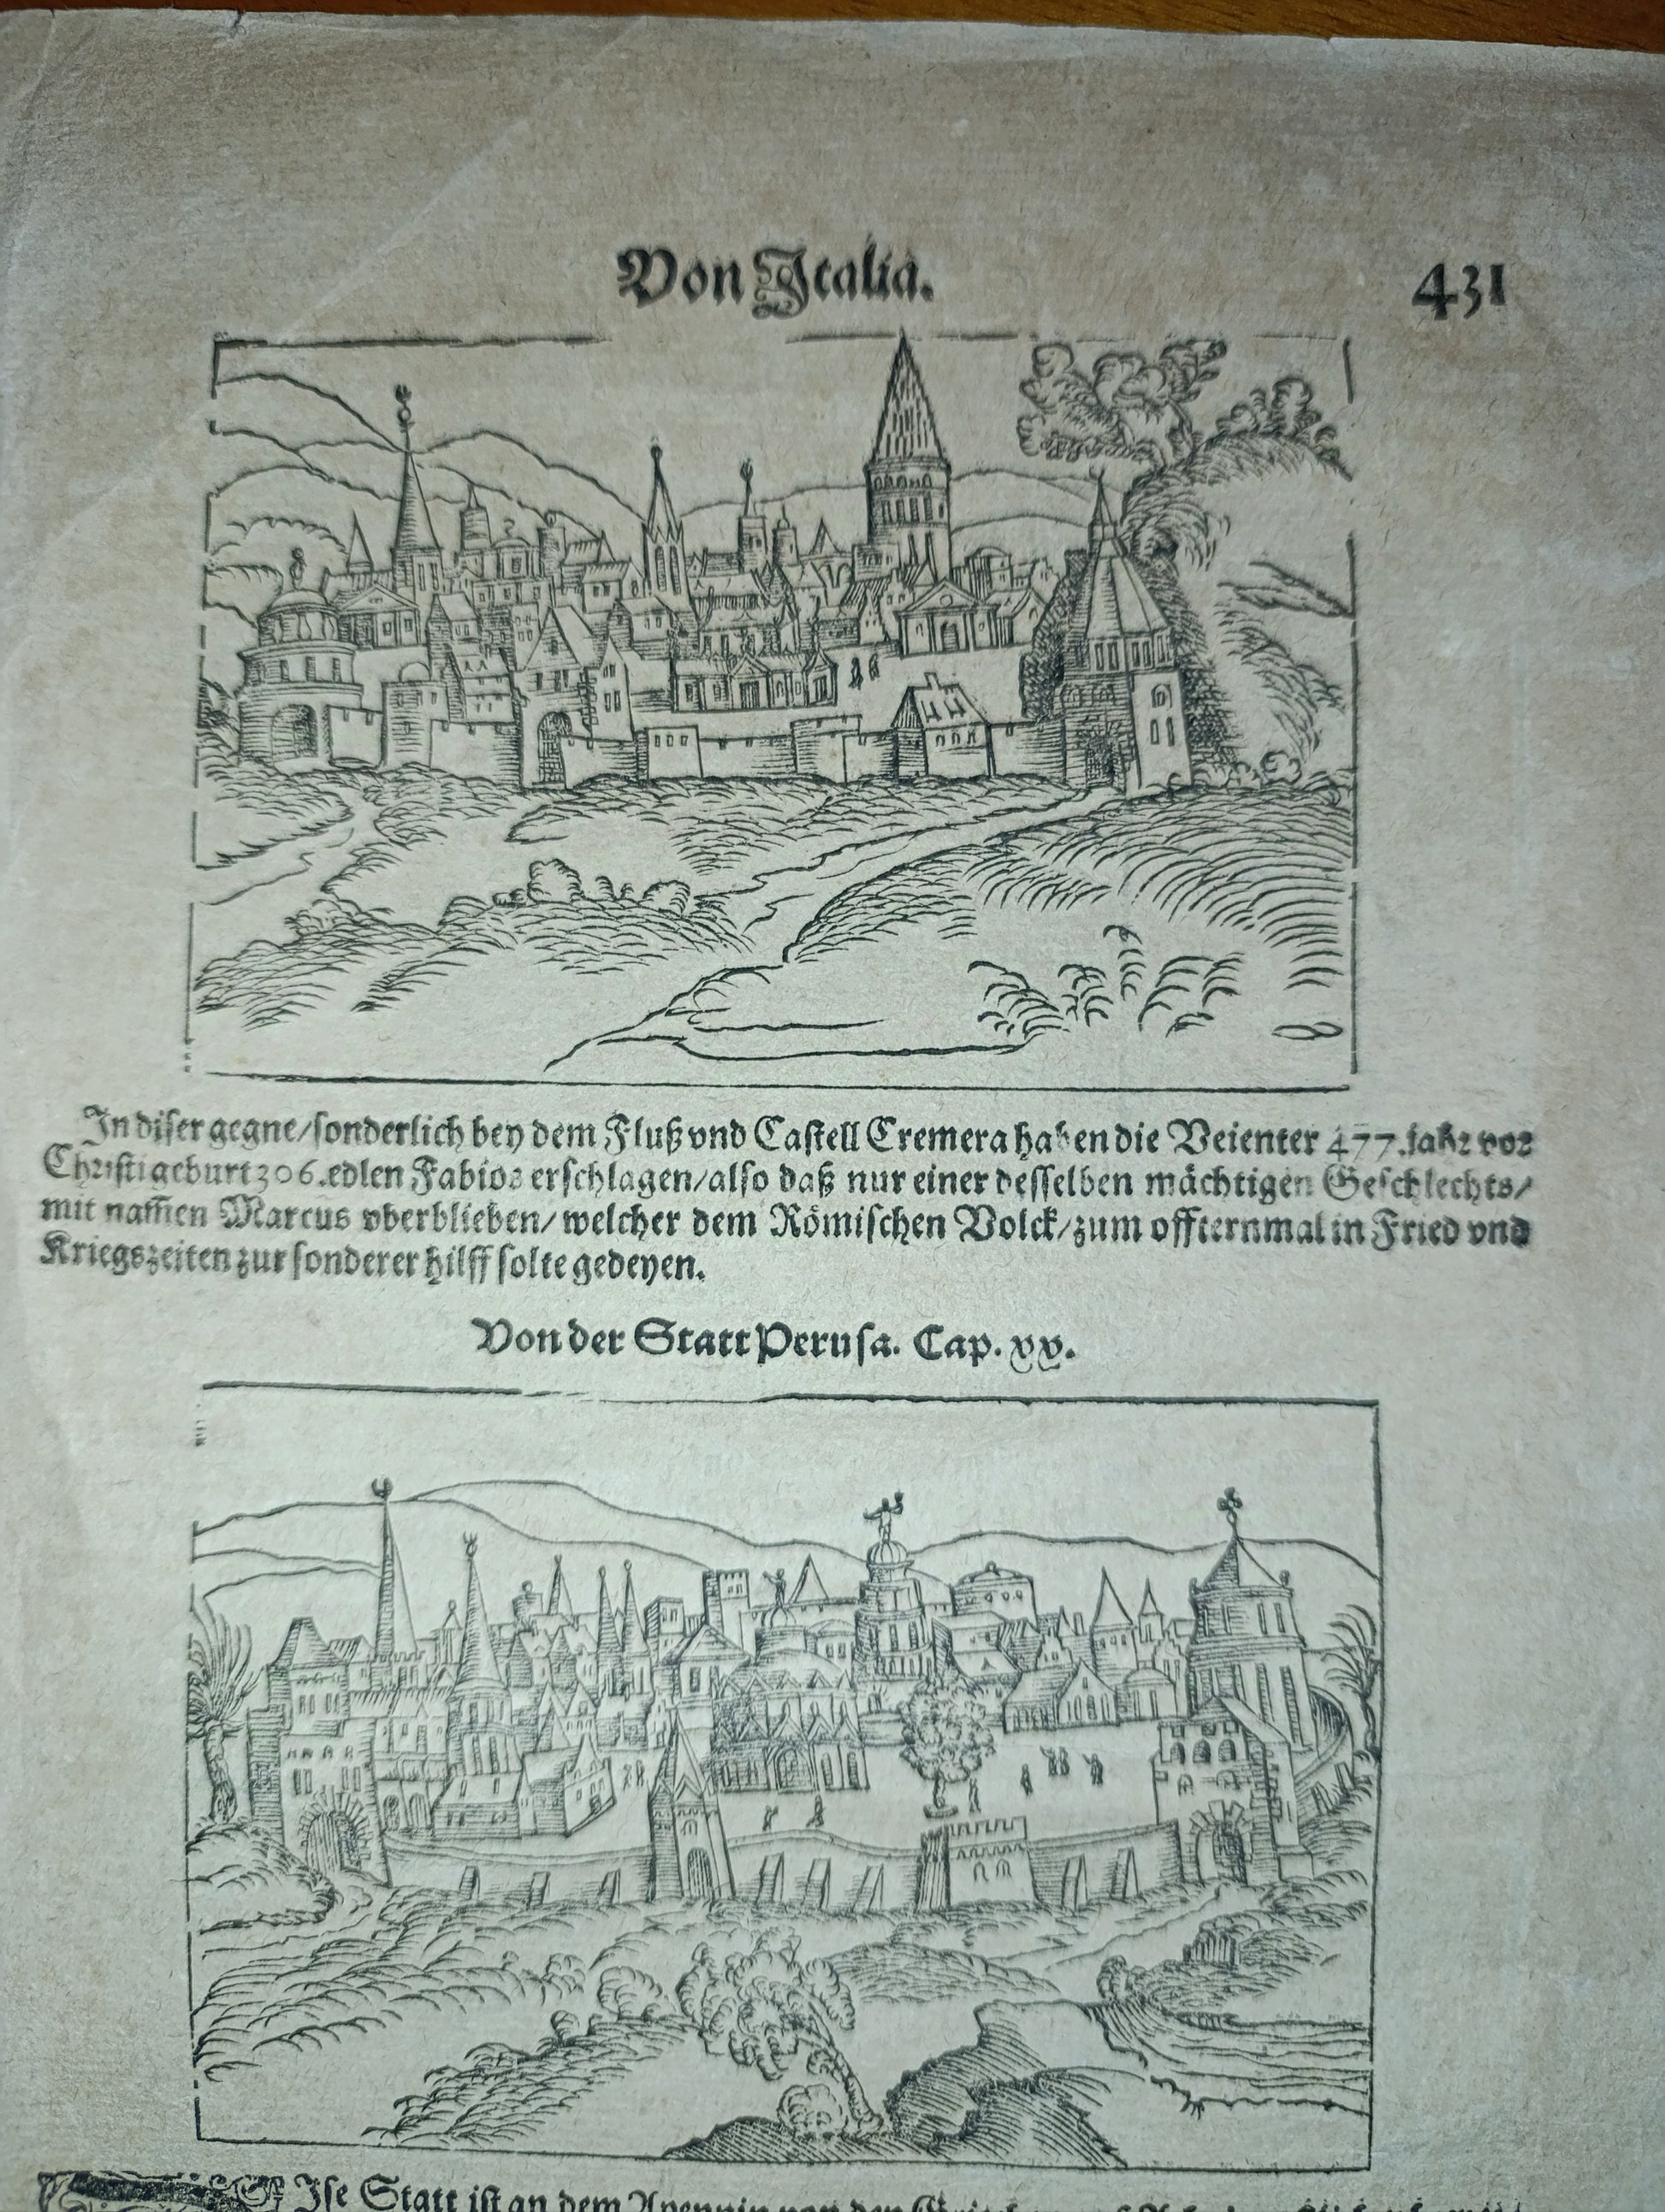 Von Italia.
431
In diser gegne/sonderlich bey dem Fluß vnd Castell Cremera haben die Veienter 477.jahr vor
Christi geburt 306.edlen Fabios erschlagen/also daß nur einer desselben mächtigen Geschlechts/
mit nam̃en Marcus vberblieben/welcher dem Römischen Volck/zum offternmal in Fried vnd
Kriegszeiten zur sonderer hilff solte gedeyen.
Von der Statt Perusa. Cap. xx.
Jse Statt ist an dem Apennin von den